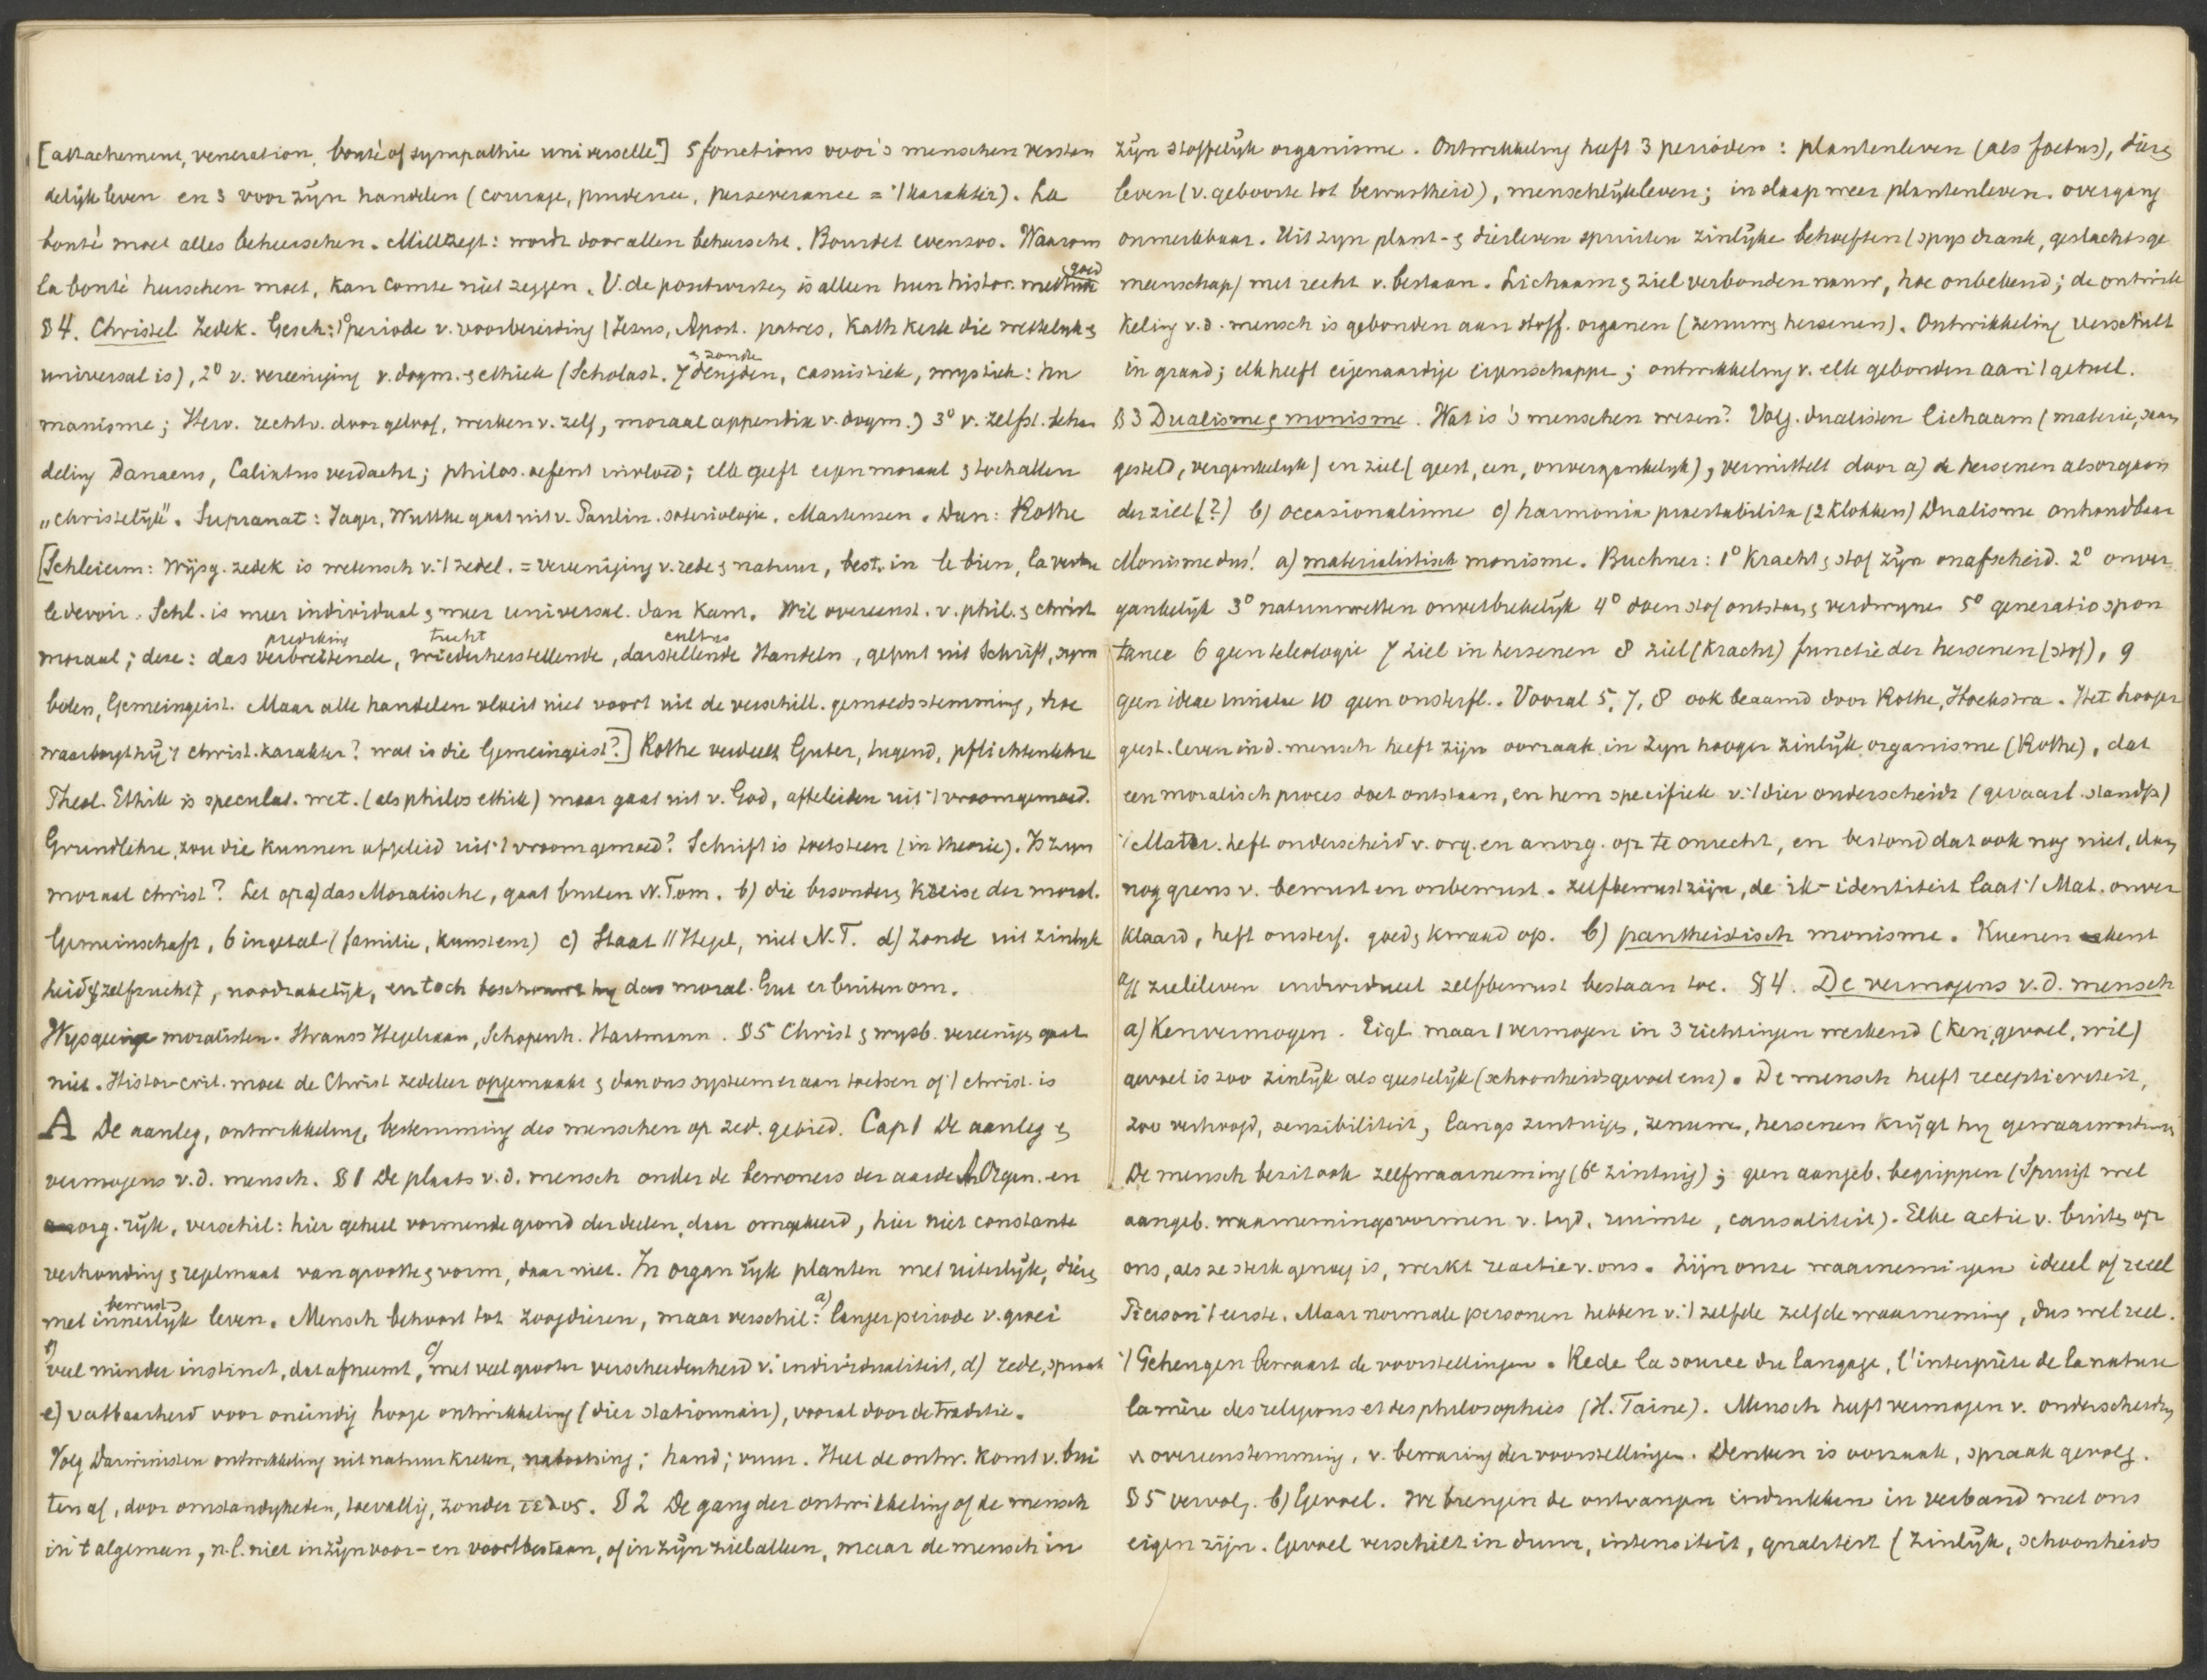 [attachement, veneration, bonté of sympathie universelle] 5 fonctions voor 's menschen verstan
delijk leven en 3 voor zijn handelen (courage, prudence, perseverance = 't karakter). La
bonté moet alles beheerschen. Mill zegt: wordt door allen beheerscht. Bourdet evenzoo. Waarom
la bonté heerschen moet, kan Comte niet zeggen. V. de positivisten is alleen hun histor. methode goed
§ 4. Christel Zedek. Gesch: 1° periode v. voorbereiding (Jezus, Apost. patres, Kath Kerk die wettelijk &
universal is), 2° v. vereeniging v. dogm. & ethiek (Scholast. 7 deugden & zonden, casuistiek, mystiek: hu
manisme; Herv. rechtv. door geloof, werken v. zelf, moraal appendix v. dogm.) 3° v. zelfst. beha
deling Danaeus, Calixtus verdacht; philos. oefent invloed; elk geeft eigen moraal & toch allen
"christelijk". Supranat: Jager, Wuttke gaat uit v. Paulin. soteriologie. Martensen. Dan: Rothe
[Schleierm: Wijsg. zedek is wetensch v. 't zedel. = vereeniging v. rede & natuur, best. in le bien, la vertu
le devoir. Schl. is meer individual & meer universal. dan Kant. Wil overeenst. v. phil. & christ
moraal; deze: das verbreitende prediking, wiederherstellende tucht, darstellende cultus Handeln, geput uit Schrift, sym
bolen, Gemeingeist. Maar alle handelen vloeit niet voort uit de verschill. gemoedsstemming, hoe
waarborgt hij 't christ. karakter? wat is die Gemeingeist?] Rothe verdeelt Güter, tugend, pflichtenlehre
Theol. Ethik is speculat. wet. (als philos ethik) maar gaat uit v. God, afteleiden uit 't vroom gemoed.
Grundlehre, zou die kunnen afgeleid uit 't vroom gemoed? Schrift is toetssteen (in theorie). Is zijn
moraal christ? Let op a) das Moralische, gaat buiten N.T. om. b) die besondere Kreise der moral.
Gemeinschaft, 6 in getal (familie, kunst enz) c) Staat // Hegel, niet N.T. d) Zonde uit zinlijk
heid & zelfzucht, noodzakelijk, en toch moral. Gut er buiten om.
Wijsgeerige moralisten. Strauss Hegeliaan, Schopenh. Hartmann. § 5 Christ & wijsb. vereenigen gaat
niet. Histor-crit. moet de Christ zedeleer opgemaakt & dan ons systeem eraan toetsen of 't christ. is
A De aanleg, ontwikkeling, bestemming des menschen op zed. gebied. Cap 1 De aanleg &
vermogens v.d. mensch. § 1 De plaats v.d. mensch onder de bewoners der aarde. Organ. en
anorg. rijk, verschil: hier geheel vormende grond der deelen, daar omgekeerd, hier niet constante
verhouding & regelmaat van grootte & vorm, daar niet. In organ rijk planten met uiterlijk, dieren
met innerlijk bewust leven. Mensch behoort tot zoogdieren, maar verschil: a) langer periode v. groei
b) veel minder instinct, dat afneemt, c) met veel grooter verscheidenheid v. individualiteit, d) rede, spraak
e) vatbaarheid voor oneindig hooge ontwikkeling (dier stationnair), vooral door de traditie.
Volg Darwinisten ontwikkeling uit natuurkreten, nabootsing; hand; vuur. Heel de ontw. komt v. bui
ten af, door omstandigheden, toevallig, zonder τελος. § 2 De gang der ontwikkeling of de mensch
in 't algemeen, n.l. niet in zijn voor- en voortbestaan, of in zijn ziel alleen, maar de mensch in
zijn stoffelijk organisme. Ontwikkeling heeft 3 perioden: plantenleven (als foetus), dieren
leven (v. geboorte tot bewustheid), menschlijk leven; in slaap weer plantenleven. overgang
onmerkbaar. Uit zijn plant- & dierleven spruiten zinlijke behoeften (spijs drank, geslachtsge
meenschap) met recht v. bestaan. Lichaam & ziel verbonden nauw, hoe onbekend; de ontwik
keling v.d. mensch is gebonden aan stoff. organen (zenuw & hersenen). Ontwikkeling verschilt
in graad; elk heeft eigenaardige eigenschappen; ontwikkeling v. elk gebonden aan 't geheel.
§ 3 Dualisme & monisme. Wat is 's menschen wezen? Volg. dualisten lichaam (materie, saam
gesteld, vergankelijk) en ziel (geest, een, onvergankelijk), vermittelt door a) de hersenen als orgaan
der ziel (?) b) occasionalisme c) harmonia praestabilita (2 klokken) Dualisme onhoudbaar
Monisme dus! a) materialistisch monisme. Buchner: 1° Kracht & stof zijn onafscheid. 2° onver
gankelijk 3° natuurwetten onverbrekelijk 4° doen stof ontstaan & verdwijnen 5° generatio spon
tanea 6 geen teleologie 7 ziel in hersenen 8 ziel (kracht) functie der hersenen (stof), 9
geen ideae innatae 10 geen onsterfl. Vooral 5, 7, 8 ook beaamd door Rothe, Hoekstra. Het hooger
geest. leven in d. mensch heeft zijn oorzaak in zijn hooger zinlijk organisme (Rothe), dat
een moralisch proces doet ontstaan, en hem specifiek v. 't dier onderscheidt (gevaarl. standp)
't Mater. heft onderscheid v. org. en anorg. op te onrecht, en bestond dat ook nog niet, dan
nog grens v. bewust en onbewust. zelfbewust zijn, de ik-identiteit laat 't Mat. onver
klaard, heft onsterf. goed & kwaad op. b) pantheistisch monisme. Kuenen kent
a/h zieleleven individueel zelfbewust bestaan toe. § 4. De vermogens v.d. mensch
a) Kenvermogen. Eigl. maar 1 vermogen in 3 richtingen werkend (ken, gevoel, wil)
gevoel is zoo zinlijk als geestelijk (schoonheidsgevoel enz). De mensch heeft receptiviteit,
zoo verhoogd, sensibiliteit, langs zintuigen, zenuwen, hersenen krijgt hij gewaarwording
De mensch bezit ook zelfwaarneming (6e zintuig); geen aangeb. begrippen (Spruijt wel
aangeb. waarnemingsvormen v. tijd, ruimte, causaliteit). Elke actie v. buiten op
ons, als ze sterk genoeg is, werkt reactie v. ons. Zijn onze waarnemingen ideeel of reeel
Pierson 't eerste. Maar normale personen hebben v. 't zelfde zelfde waarneming, dus wel reel.
't Geheugen bewaart de voorstellingen. Rede la source du langage, l'interprète de la nature
la mère des religions et des philosophies (H. Taine). Mensch heeft vermogen v. onderscheiding
& overeenstemming, v. bewaring der voorstellingen. Denken is oorzaak, spraak gevolg.
§ 5 vervolg. b) Gevoel. We brengen de ontvangen indrukken in verband met ons
eigen zijn. Gevoel verschilt in duur, intensiteit, qualiteit (zinlijk, schoonheids